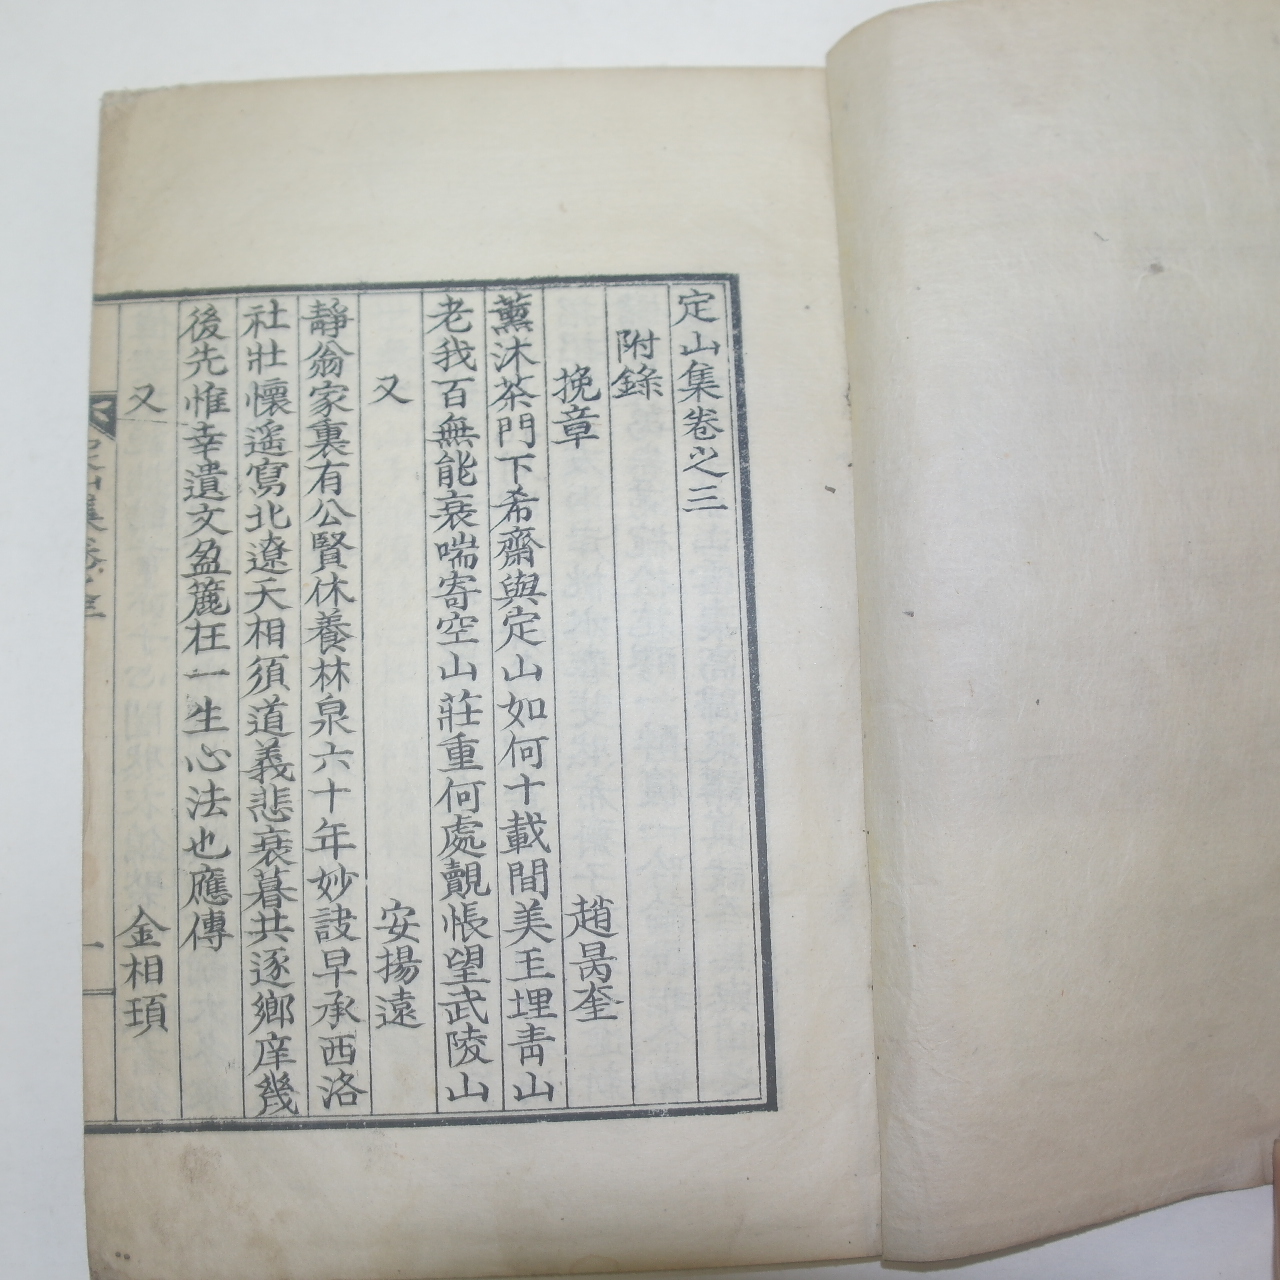 定山集卷之三
附錄
挽章 趙昺奎
薰沐茶門下希齋與定山如何十載間美玉埋靑山
老我百無能衰喘寄空山莊重何處覿悵望武陵山
又 安揚遠
靜翁家裏有公賢休養林泉六十年妙詇早承西洛
社壯懷遥寫北遼天相須道義悲衰暮共逐鄉庠幾
後先惟幸遺文盈簏在一生心法也應傳
又 金相頊
定山集卷之三
一